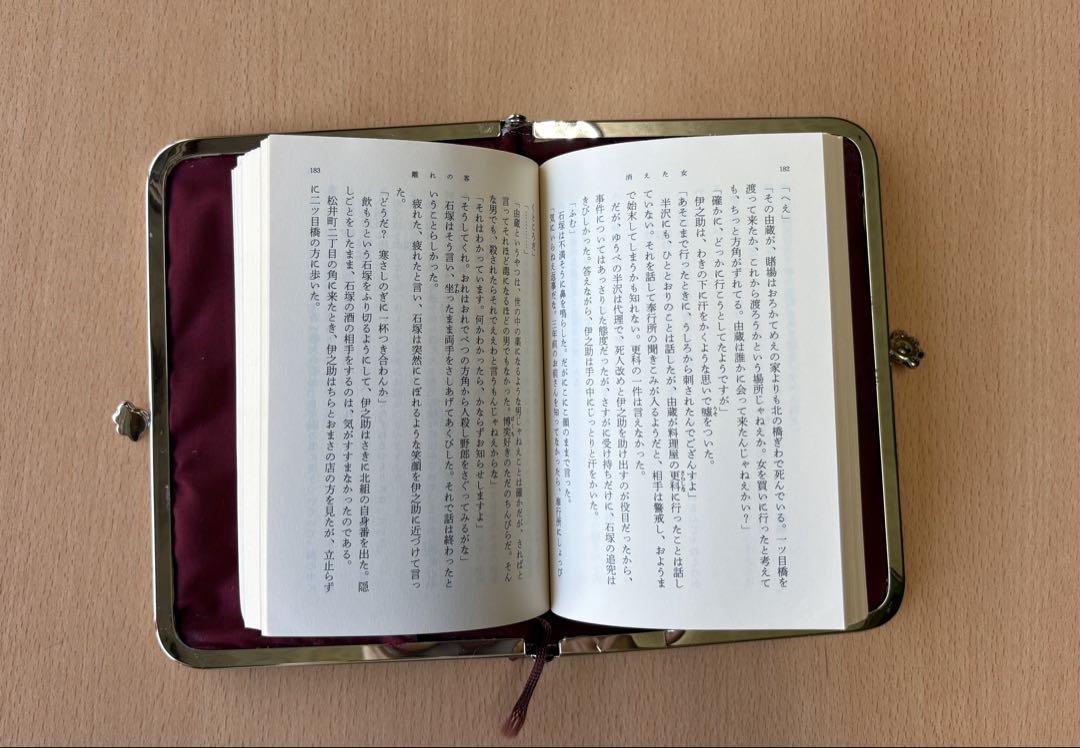 182
消えた女
「へえ」
「その由蔵が、賭場はおろかてめえの家よりも北の橋ぎわで死んでいる。一ツ目橋を
渡って来たか、これから渡ろうかという場所じゃねえか。女を買いに行ったと考えて
も、ちっと方角がずれてる。由蔵は誰かに会って来たんじゃねえかい?」
「確かに、どっかに行こうとしてたようですが」
伊之助は、わきの下に汗をかくような思いで嘘をついた。
「あそこまで行ったときに、うしろから刺されたんでござんすよ」
半沢にも、ひととおりのことは話したが、由蔵が料理屋の更科に行ったことは話し
ていない。それを話して奉行所の聞きこみが入るようだと、相手は警戒し、おようま
で始末してしまうかも知れない。更科の一件は言えなかった。
だが、ゆうべの半沢は代理で、死人改めと伊之助を助け出すのが役目だったから、
事件についてはあっさりした態度だったが、さすがに受け持ちだけに、石塚の追究は
きびしかった。答えながら、伊之助は手の中にじっとりと汗をかいた。
「ふむ」
石塚は不満そうに鼻を鳴らした。だがにこにこ顔のままで言った。
「気にいらねえ返事だな。三年前のお前さんを知ってなかったら、奉行所にしょっぴ
183
離れの客
くところだ」
「…………」
「由蔵というやつは、世の中の薬になるような男じゃねえことは確かだが、さればと
言ってそれほど毒になるほどの男でもなかった。博奕好きのただのちんぴらだ。そん
な男でも、殺されたらそれでええわと言うもんじゃねえからな」
「それはわかっています。何かわかったら、かならずお知らせしますよ」
「そうしてくれ。おれはおれでべつの方角から人殺し野郎をさぐってみるがな」
石塚はそう言い、坐ったまま両手をさしあげてあくびした。それで話は終わったと
いうことらしかった。
疲れた、疲れたと言い、石塚は突然にこぼれるような笑顔を伊之助に近づけて言っ
た。
「どうだ? 寒さしのぎに一杯つき合わんか」
飲もうという石塚をふり切るようにして、伊之助はさきに北組の自身番を出た。隠
しごとをしたまま、石塚の酒の相手をするのは、気がすすまなかったのである。
松井町二丁目の角に来たとき、伊之助はちらとおまさの店の方を見たが、立止らず
に二ツ目橋の方に歩いた。